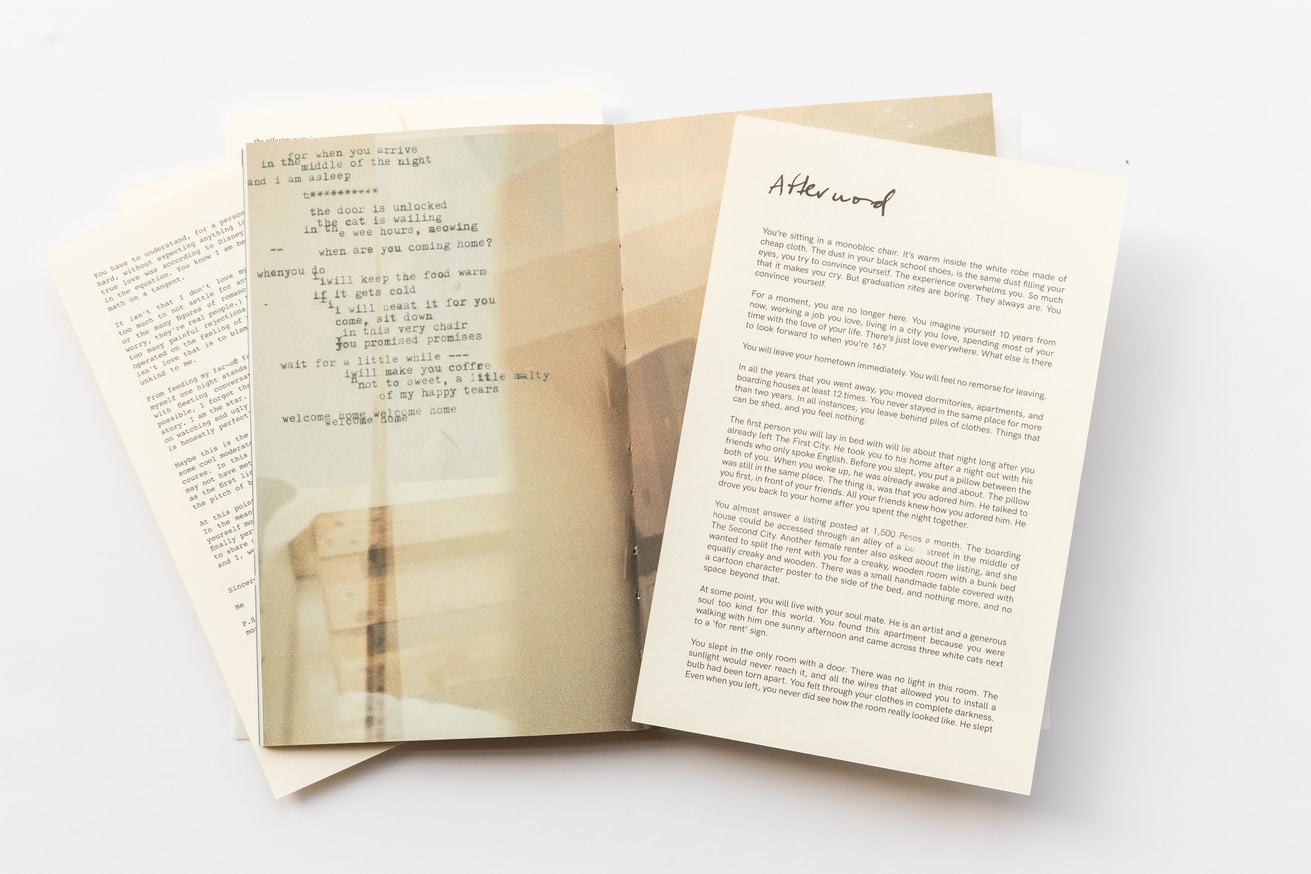 the pilgrim
You have to understand, for a person
hard, without expecting anything in
true love was according to Disney
in the equation. You know I am be
math on a tangent.
It isn't that I don't love my
too much to not settle for an
or the many figures of romanc
worry, they're real people.)
too many painful rejections
operated on the feeling of
isn't love that is to blam
unkind to me.
From feeding my far-off fa
myself one night stands
with fleeting conversat
possible, I forgot the
story. I am the star.
on watching and ugly
is honestly perfect
Maybe this is the
some cool moderat
course. In this
may not have met
as the first li
the pitch of b
At this poin
In the mean
yourself mo
finally per
to share
and I, w
Sincer
Me
P.S
mo
for when you arrive
in the middle of the night
and i am asleep
t**********
the door is unlocked
the cat is wailing
in the wee hours, meowing
-- when are you coming home?
whenyou do
iwill keep the food warm
if it gets cold
i will neaat it for you
come, sit down
in this very chair
you promised promises
wait for a little while ---
iwill make you coffee
not to sweet, a little malty
of my happy tears
welcome home welcome home
welcome home
Afterword
You're sitting in a monobloc chair. It's warm inside the white robe made of
cheap cloth. The dust in your black school shoes, is the same dust filling your
eyes, you try to convince yourself. The experience overwhelms you. So much
that it makes you cry. But graduation rites are boring. They always are. You
convince yourself.
For a moment, you are no longer here. You imagine yourself 10 years from
now, working a job you love, living in a city you love, spending most of your
time with the love of your life. There's just love everywhere. What else is there
to look forward to when you're 16?
You will leave your hometown immediately. You will feel no remorse for leaving.
In all the years that you went away, you moved dormitories, apartments, and
boarding houses at least 12 times. You never stayed in the same place for more
than two years. In all instances, you leave behind piles of clothes. Things that
can be shed, and you feel nothing.
The first person you will lay in bed with will lie about that night long after you
already left The First City. He took you to his home after a night out with his
friends who only spoke English. Before you slept, you put a pillow between the
both of you. When you woke up, he was already awake and about. The pillow
was still in the same place. The thing is, was that you adored him. He talked to
you first, in front of your friends. All your friends knew how you adored him. He
drove you back to your home after you spent the night together.
You almost answer a listing posted at 1,500 Pesos a month. The boarding
house could be accessed through an alley of a street in the middle of
The Second City. Another female renter also asked about the listing, and she
wanted to split the rent with you for a creaky, wooden room with a bunk bed
equally creaky and wooden. There was a small handmade table covered with
a cartoon character poster to the side of the bed, and nothing more, and no
space beyond that.
At some point, you will live with your soul mate. He is an artist and a generous
soul too kind for this world. You found this apartment because you were
walking with him one sunny afternoon and came across three white cats next
to a 'for rent' sign.
You slept in the only room with a door. There was no light in this room. The
sunlight would never reach it, and all the wires that allowed you to install a
bulb had been torn apart. You felt through your clothes in complete darkness.
Even when you left, you never did see how the room really looked like. He slept